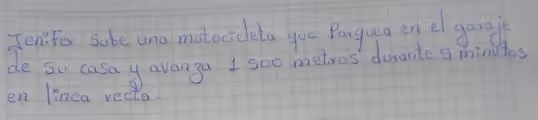 Jenifer sube una motocicleta que Parquea en el garaje
de su casa y avanza 1 500 metros durante 5 minutos
en linea recta.